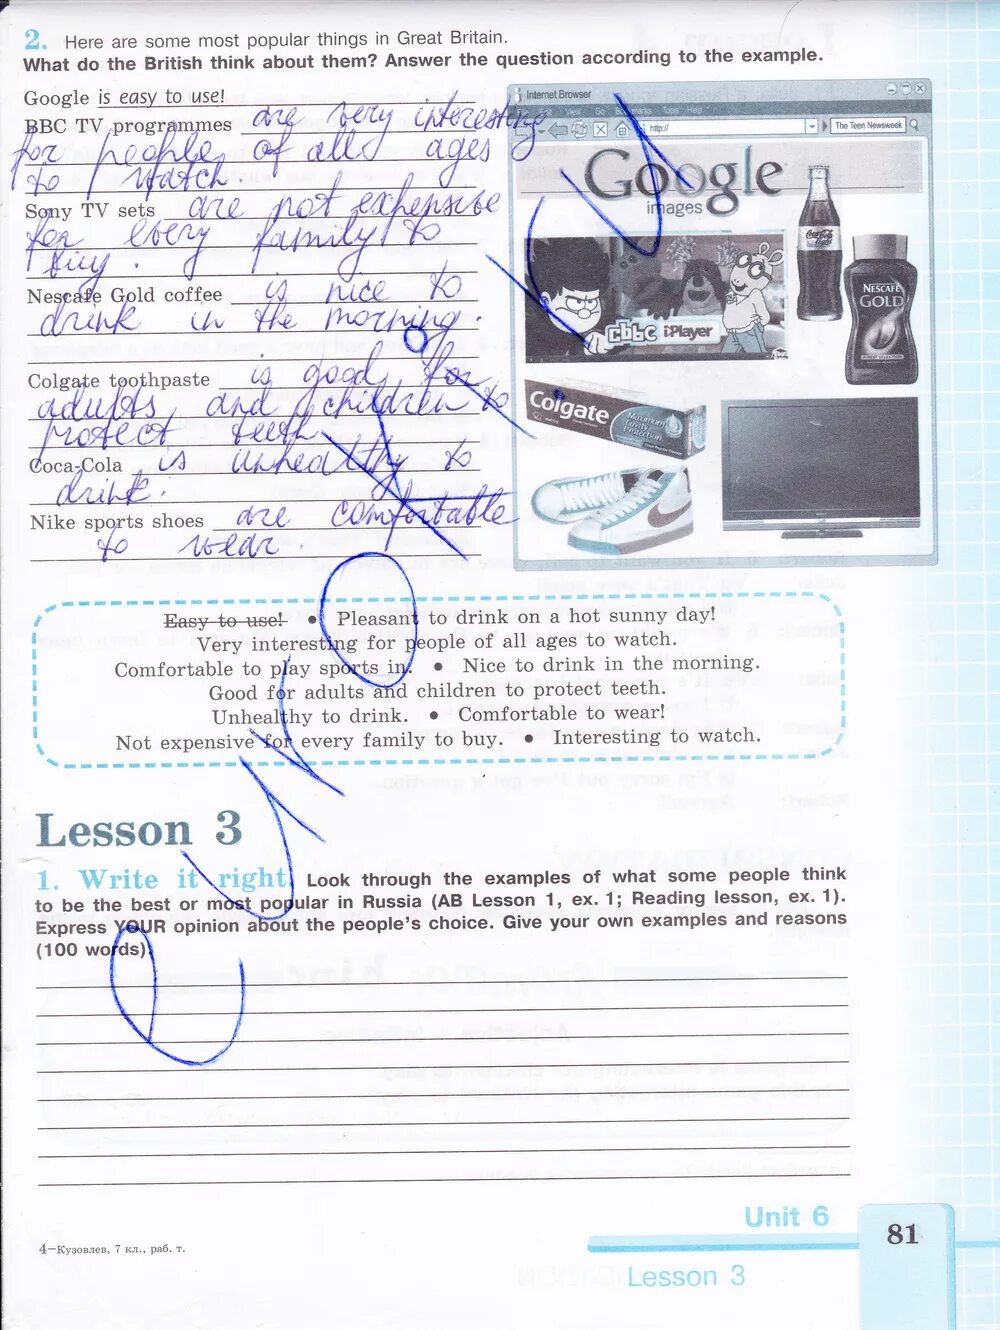 2. Here are some most popular things in Great Britain.
What do the British think about them? Answer the question according to the example.
Google is easy to use!
BBC TV programmes are very interesting
for people of all ages
to watch.
Sony TV sets are not expensive
for every family to
buy.
Nescafe Gold coffee is nice to
drink in the morning.
Colgate toothpaste is good for
adults and children to
protect teeth
Coca-Cola is unhealthy to
drink.
Nike sports shoes are comfortable
to wear.
Internet Browser
http://
The Teen Newsweek
Google
images
Coca-Cola
light
NESCAFÉ
GOLD
cbbc iPlayer
Colgate
Maximum
Cavity
Protection
Easy to use! • Pleasant to drink on a hot sunny day!
Very interesting for people of all ages to watch.
Comfortable to play sports in. • Nice to drink in the morning.
Good for adults and children to protect teeth.
Unhealthy to drink. • Comfortable to wear!
Not expensive for every family to buy. • Interesting to watch.
Lesson 3
1. Write it right. Look through the examples of what some people think
to be the best or most popular in Russia (AB Lesson 1, ex. 1; Reading lesson, ex. 1).
Express YOUR opinion about the people's choice. Give your own examples and reasons
(100 words).
Unit 6
81
4–Кузовлев, 7 кл., раб. т.
Lesson 3